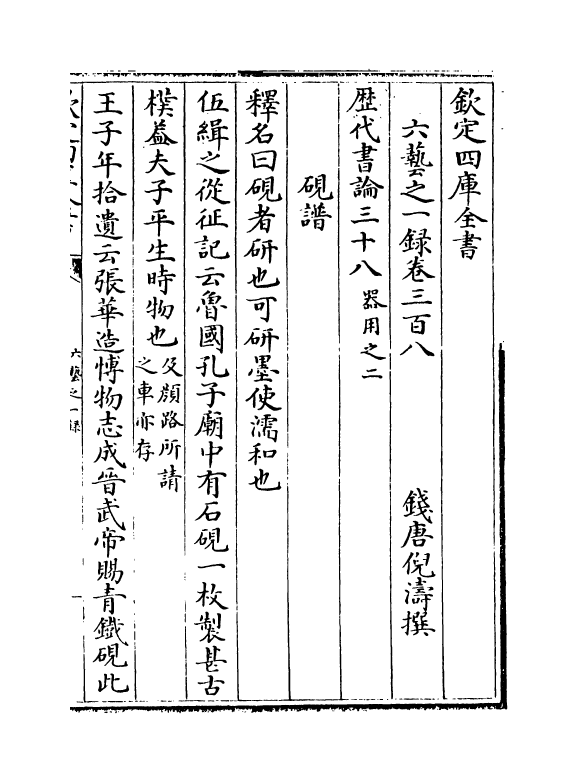 欽定四庫全書
六藝之一録卷三百八
錢唐倪濤撰
歴代書論三十八 器用之二
硯譜
釋名曰硯者研也可研墨使濡和也
伍緝之從征記云魯國孔子廟中有石硯一枚製甚古
樸葢夫子平生時物也 及顔路所請之車亦存
王子年拾遺云張華造博物志成晉武帝賜青鐵硯此
六藝之一録
一